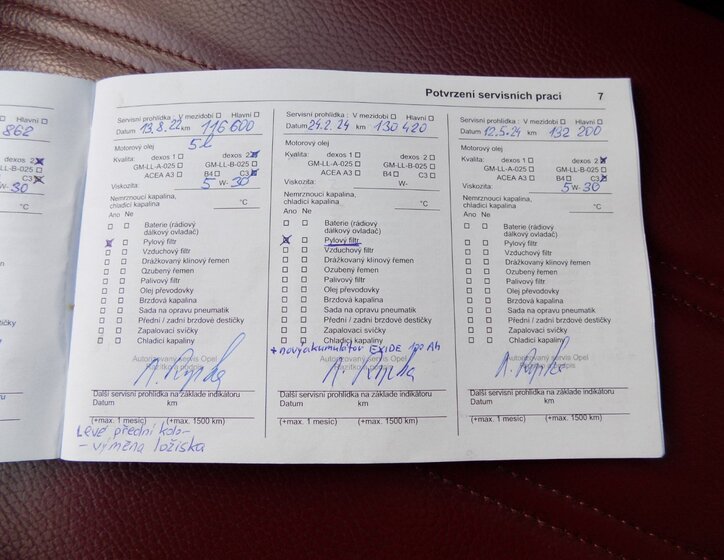 Potvrzení servisních prací 7
862
Hlavní
dexos 2
GM-LL-B-025
C3
W-30
Servisní prohlídka : V mezidobí Hlavní
Datum 13.8.22 km 116 600
Motorový olej 5l
Kvalita: dexos 1 dexos 2
GM-LL-A-025 GM-LL-B-025
ACEA A3 B4 C3
Viskozita: 5 W-30
Nemrznoucí kapalina,
chladicí kapalina °C
Ano Ne
Baterie (rádiový
dálkový ovladač)
Pylový filtr
Vzduchový filtr
Drážkovaný klínový řemen
Ozubený řemen
Palivový filtr
Olej převodovky
Brzdová kapalina
Sada na opravu pneumatik
Přední / zadní brzdové destičky
Zapalovací svíčky
Chladicí kapaliny
Autorizovaný servis Opel
Razítko a podpis
Další servisní prohlídka na základě indikátoru
Datum km
(+max. 1 měsíc) (+max. 1500 km)
Levé přední kolo -
- výměna ložiska
Servisní prohlídka : V mezidobí Hlavní
Datum 24.2.24 km 130 420
Motorový olej
Kvalita: dexos 1 dexos 2
GM-LL-A-025 GM-LL-B-025
ACEA A3 B4 C3
Viskozita: W-
Nemrznoucí kapalina,
chladicí kapalina °C
Ano Ne
Baterie (rádiový
dálkový ovladač)
Pylový filtr
Vzduchový filtr
Drážkovaný klínový řemen
Ozubený řemen
Palivový filtr
Olej převodovky
Brzdová kapalina
Sada na opravu pneumatik
Přední / zadní brzdové destičky
Zapalovací svíčky
Chladicí kapaliny
+ nový akumulátor EXIDE 100 Ah
Autorizovaný servis Opel
Razítko a podpis
Další servisní prohlídka na základě indikátoru
Datum km
(+max. 1 měsíc) (+max. 1500 km)
Servisní prohlídka : V mezidobí Hlavní
Datum 12.5.24 km 132 200
Motorový olej
Kvalita: dexos 1 dexos 2
GM-LL-A-025 GM-LL-B-025
ACEA A3 B4 C3
Viskozita: 5 W-30
Nemrznoucí kapalina,
chladicí kapalina °C
Ano Ne
Baterie (rádiový
dálkový ovladač)
Pylový filtr
Vzduchový filtr
Drážkovaný klínový řemen
Ozubený řemen
Palivový filtr
Olej převodovky
Brzdová kapalina
Sada na opravu pneumatik
Přední / zadní brzdové destičky
Zapalovací svíčky
Chladicí kapaliny
Autorizovaný servis Opel
Razítko a podpis
Další servisní prohlídka na základě indikátoru
Datum km
(+max. 1 měsíc) (+max. 1500 km)